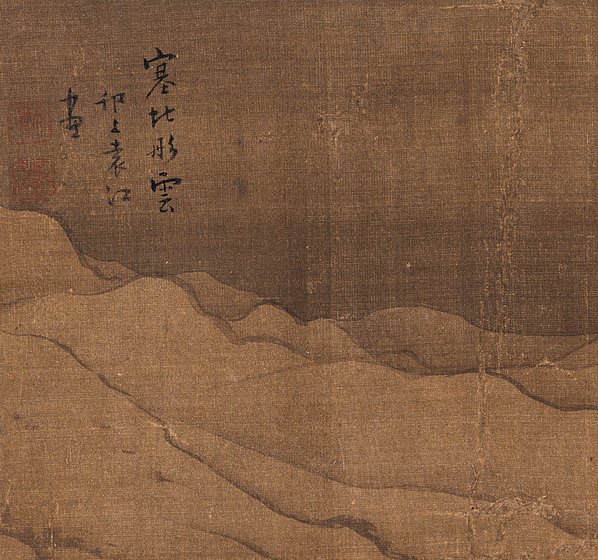 塞北彤雲
邗上袁江
畫